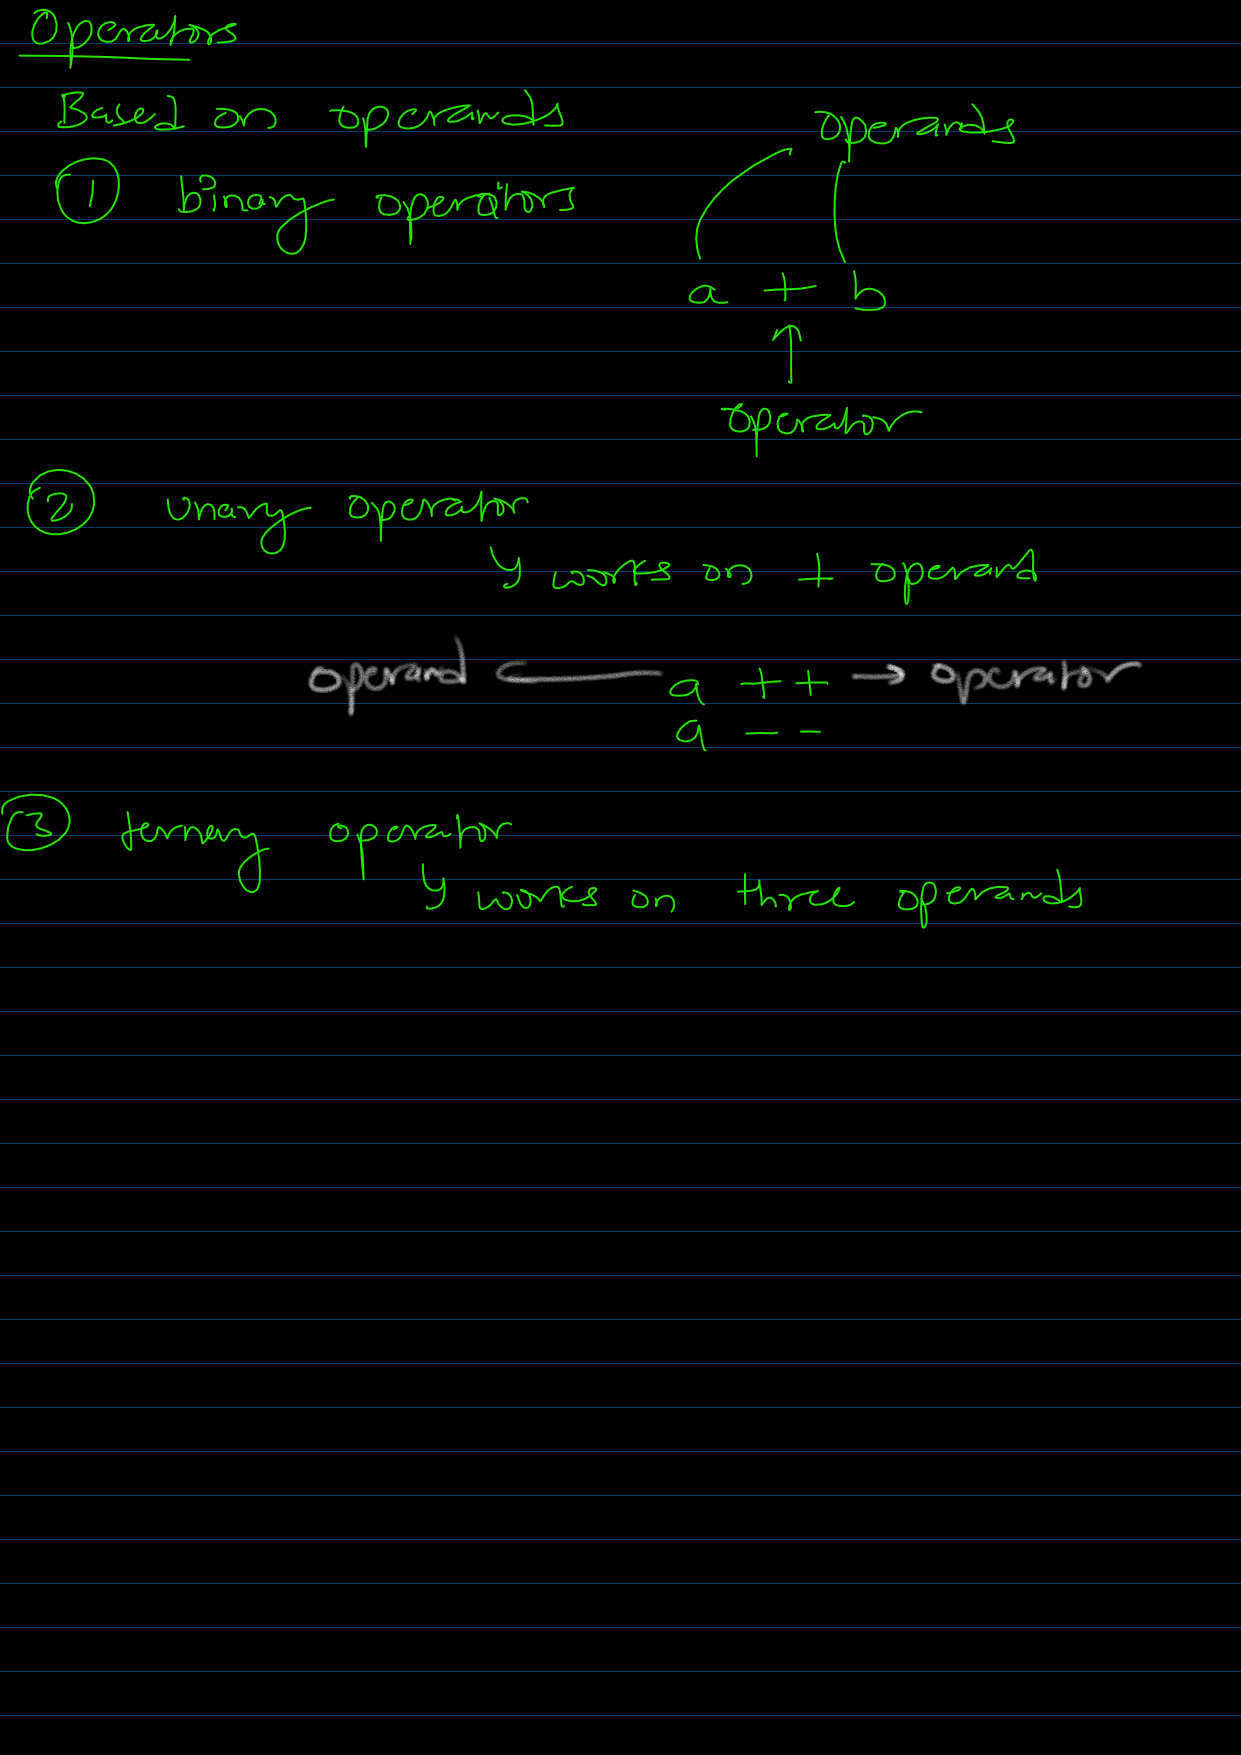 Operators
Based on operands
operands
① binary operators
a + b
↑
operator
② unary operator
↳ works on 1 operand
operand ← a ++ → operator
a --
③ ternary operator
↳ works on three operands